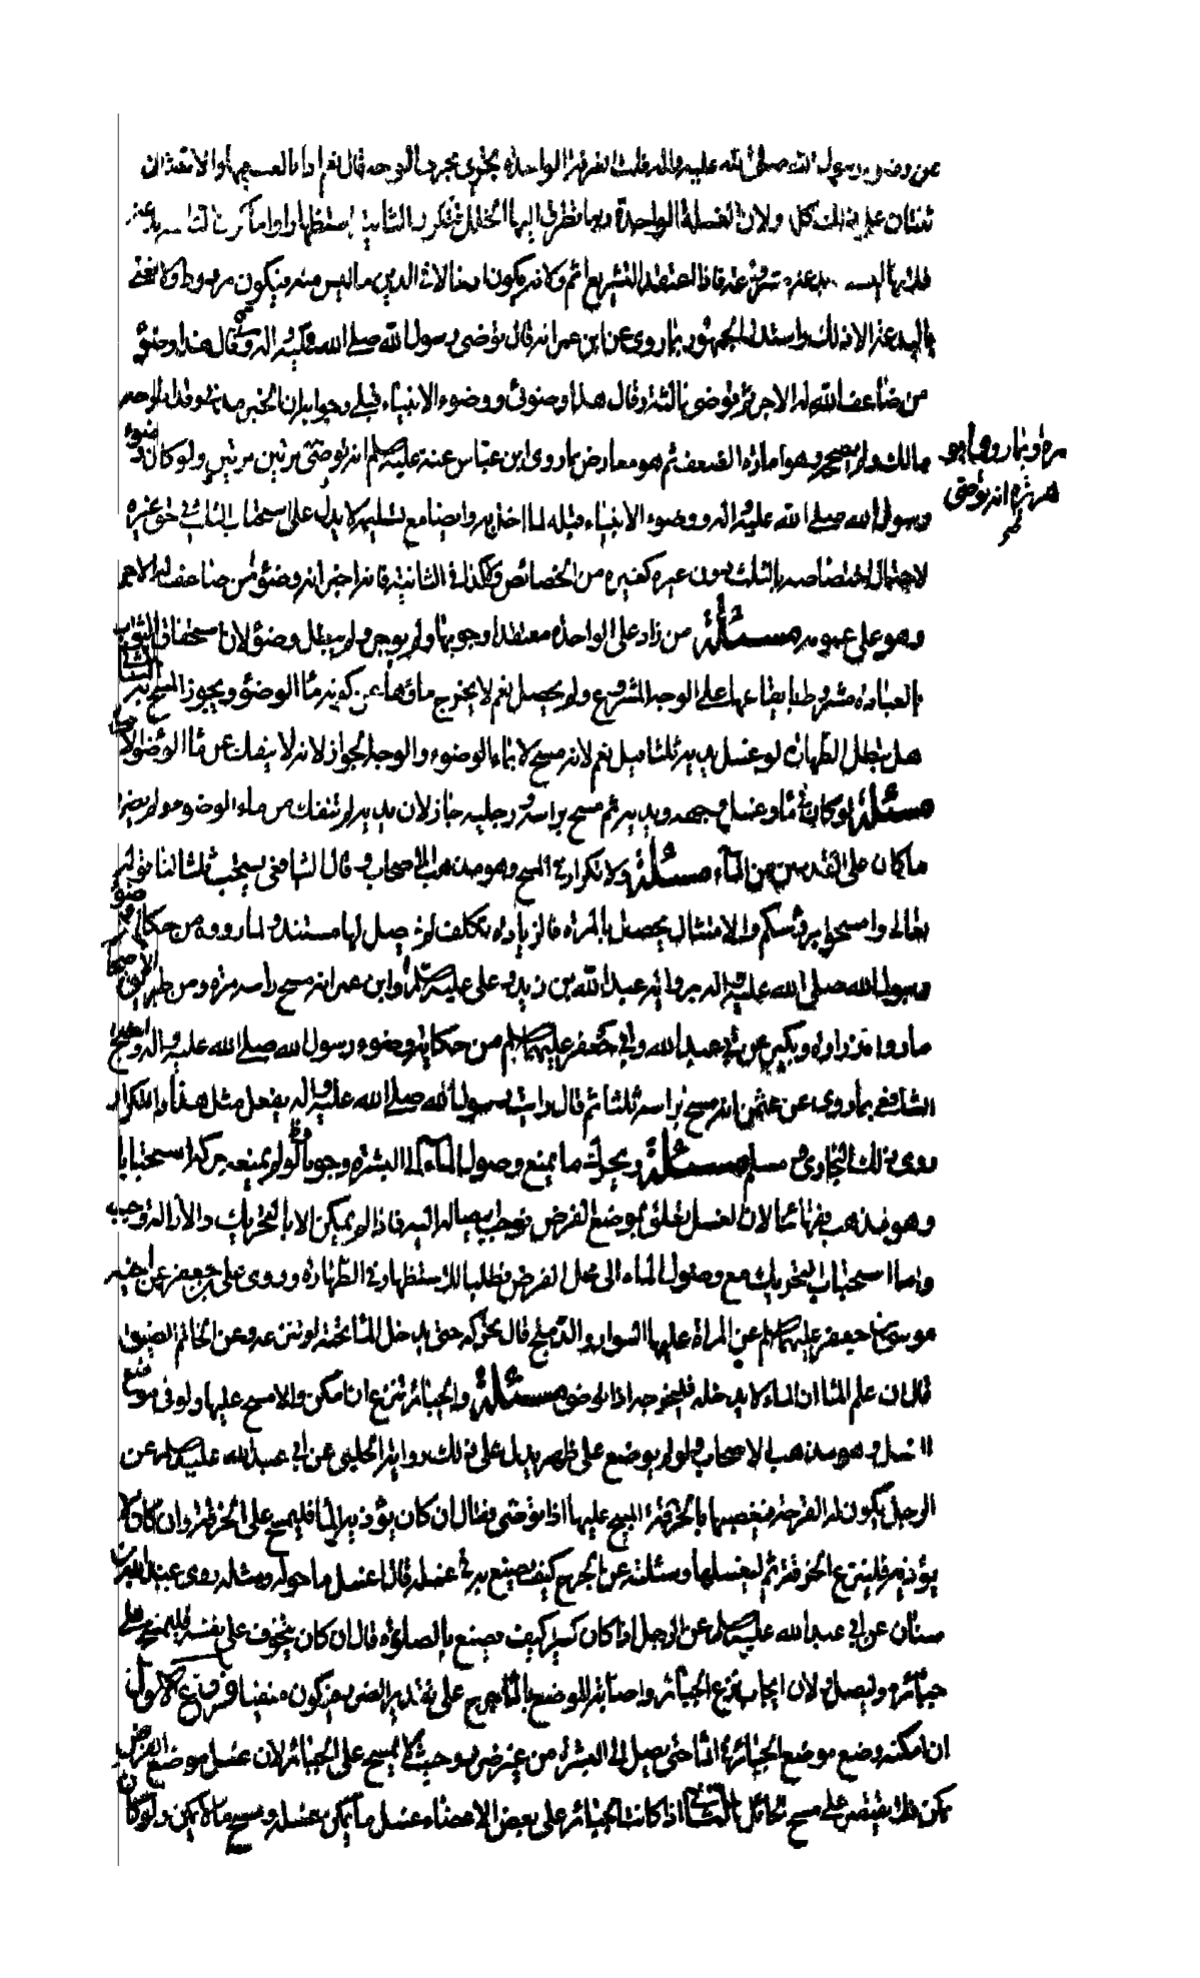 عن وضوء رسول الله صلى الله عليه واله فقلت الغرفة الواحدة يجزى مجرى الوجه قال نعم اذا بالغت فيها والاثنتان
تثنتان على ذلك كله ولان الغسلة الواحدة ربما تطرق اليها الخلل فتكرر الثانية استظهارا واما كون الثالثة بدعة
فلانها ليست مشروعة فاذا اعتقد التشريع اثم ولانه يكون ادخالا في الدين ما ليس منه فيكون مردودا ولا نعني
بالبدعة الا ذلك واستدل الجمهور بما روى عن ابن عمر انه قال توضى رسول الله صلى الله عليه واله مرة وقال هذا وضوء
من ضاعف الله له الاجر ثم توضى بالثلثة وقال هذا وضوئى ووضوء الانبياء قبلى وجوابه ان الخبر وقد انكره
مالك ولم يصححه وهو امارة الضعف ثم هو معارض بما روى ابن عباس عنه عليه السلم انه توضى مرتين مرتين ولو كان وضوء
مرة وبما روى ابو
هريرة انه توضى
رسول الله صلى الله عليه واله ووضوء الانبياء قبله لما اخل به وايضا مع تسليمه لا يدل على استحباب الثالثة في حق غيره
لاحتمال اختصاصه بالثلث دون غيره كغيره من الخصائص وكذا في الثانية فانه اخبر انه وضوء من ضاعف له الاجر
وهو على عمومه مسئلة من زاد على الواحدة معتقدا وجوبها لم يوجر ولم يبطل وضوؤه لان استحقاق الثواب
بالعبادة مشروط بايقاعها على الوجه المشروع ولم يحصل نعم لا يخرج ماؤها عن كونه من ماء الوضوء ويجوز المسح به
هل تبطل الطهارة لو غسل يديه ثلثا قيل نعم لانه مسح لا بماء الوضوء والوجه الجواز لانه لا ينفك عن ماء الوضوء الاول
مسئلة لو كان في ماء وغسل وجهه ويديه ثم مسح براسه ورجليه جاز لان يديه لم تنفك من ماء الوضوء ولم يضره
ما كان على القدمين من الماء مسئلة ولا تكرار في المسح وهو مذهب الاصحاب وقال الشافعى يستحب ثلثا لنا قوله
تعالى وامسحوا برؤسكم والامتثال يحصل بالمرة فالزيادة تكلف لم يحصل لها مستند ولما رووه من حكاية وضوء
رسول الله صلى الله عليه واله من رواية عبد الله بن زيد وعلى عليه السلم وابن عمر انه مسح راسه مرة ومن طريق الاصحاب
ما رواه زرارة وبكير عن ابى عبد الله وابى جعفر عليهما السلم من حكاية وضوء رسول الله صلى الله عليه واله واحتج
الشافعى بما روى عن عثمن انه مسح براسه ثلثا ثم قال رايت رسول الله صلى الله عليه واله يفعل مثل هذا وانكر
روى ذلك البخارى ومسلم مسئلة ويحرك ما يمنع وصول الماء الى البشرة وجوبا ولو لم يمنعه حركه استحبابا
وهو مذهب فقهائنا لان الغسل تعلق بموضع الفرض فوجب ايصاله اليه فاذا لم يمكن الا بالتحريك والا زالة وجبت
واما استحباب التحريك مع وصول الماء الى محل الفرض فطلبا للاستظهار في الطهارة وروى على بن جعفر عن اخيه
موسى بن جعفر عليهما السلم عن المراة عليها السوار والدملج قال تحركه حتى يدخل الماء تحته او تنزعه وعن الخاتم الضيق
قال ان علم الماء ان الماء لا يدخله فليخرجه اذا توضى مسئلة والجبائر تنزع ان امكن والا مسح عليها ولو في موضع
الغسل وهو مذهب الاصحاب ولو لم يوضع على طهر يدل على ذلك رواية الحلبى عن ابى عبد الله عليه السلم عن
الرجل يكون له القرحة فيعصبها بالخرقة ايمسح عليها اذا توضى فقال ان كان يؤذيه الماء فليمسح على الخرقة وان كان لا
يؤذيه فلينزع الخرقة ثم ليغسلها وسئلته عن الجرح كيف يصنع به في غسله قال اغسل ما حوله ومثله روى عبد الله بن
سنان عن ابى عبد الله عليه السلم عن الرجل اذا كان كسيرا كيف يصنع بالصلوة قال ان كان يتخوف على نفسه فليمسح على
جبائره وليصل ولان ايجاب نزع الجبائر واصابة الموضع بالماء حرج على تقدير الضرر فيكون منفيا فروع الاول
ان امكنه وضع موضع الجبائر في الماء حتى يصل الى البشرة من غير ضرر وجب ولا يمسح على الجبائر لان غسل موضع الفرض
ممكن فلا يقتصر على مسح الحائل الثانى اذا كانت الجبائر على بعض الاعضاء غسل ما يمكن غسله ومسح ما لا يمكن ولو كان